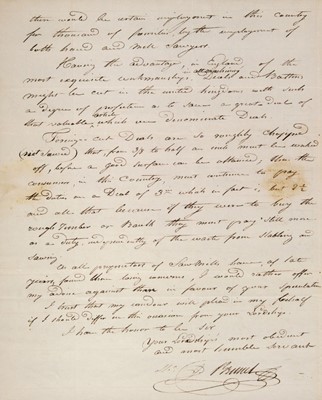 there would be certain employment in this country
for thousand of families by the employment of
both hand and Mill Sawyers
Having the advantage, in England, of the
most exquisite workmanship, in all
Deals and Battens
might be cut in the united kingdom with such
a degree of perfection as to save a great deal of
that valuable article which
Foreign cut Deals are so roughly Chopped
(not sawed) that for 3/8 to half an inch must be
off, before a good surface can be obtained, thus the
consumer, in this Country, must continue to pray
the duties on a Deal of 3in which in fact is but 2½
and all that because if they were to buy the
rough Timber or Baulk they must pay still more
as a duty in of the waste from Slabbing and
Sawing
As all proprietors of Saw Mills have, of late
years, found them losing concerns, I would rather offer
my advice against than in favour of your speculation
I trust that my candour will plead in my behalf
if I should differ on this occasion from your Lordship.
I have the honor to be Sir
Your Lordship's most obedient
and most humble servant
Brunel